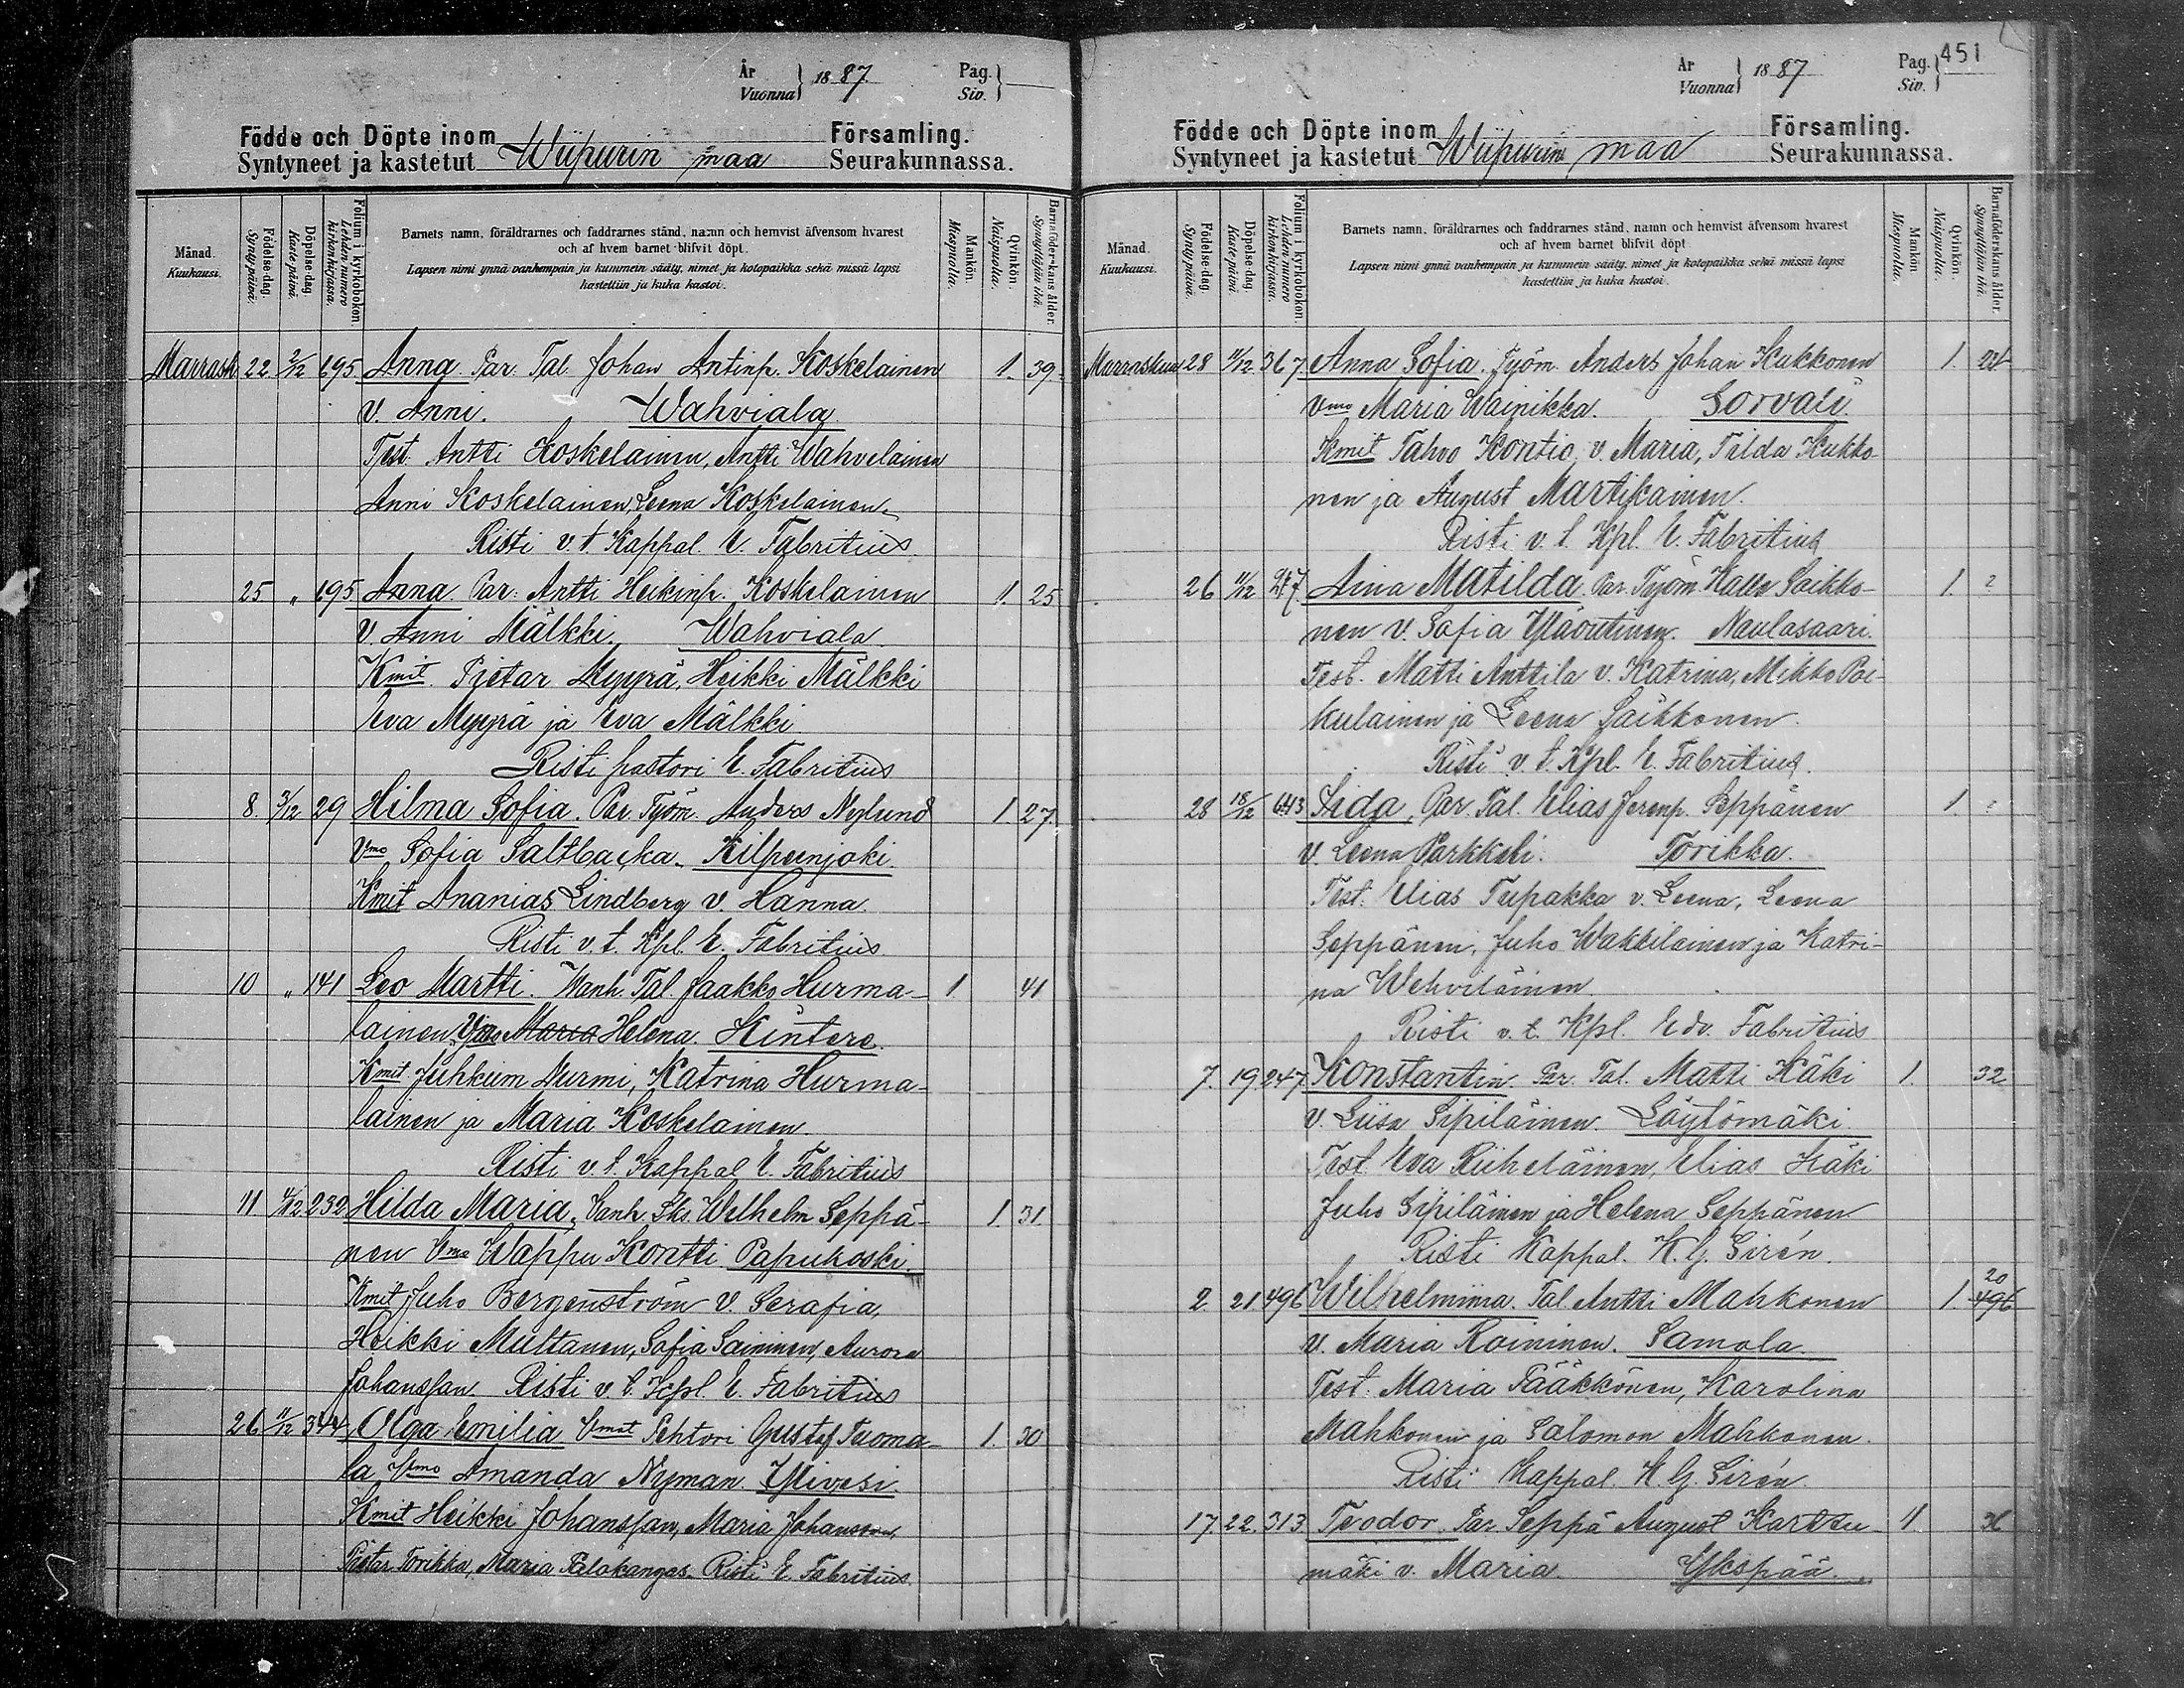 År
Vuonna } 1887. Pag.
Siv. }
Födde och Döpte inom Församling.
Syntyneet ja kastetut Wiipurin maa Seurakunnassa.
Månad. Kuukausi.
Födelse-dag. Syntypäivä.
Döpelse-dag. Kastepäivä.
Folium i kyrkoboken. Lehden numero kirkonkirjassa.
Barnets namn, föräldrarnes och faddrarnes stånd, namn och hemvist äfvensom hvarest
och af hvem barnet blifvit döpt.
Lapsen nimi ynnä vanhempain ja kummein sääty, nimet ja kotopaikka sekä missä lapsi
kastettiin ja kuka kastoi.
Mankön. Miespuolia.
Qvinkön. Naispuolia.
Barnaföderskans ålder. Synnyttäjän ikä.
Marrask 22 2/12 195 Anna Par. Tal. Johan Antinp. Koskelainen 1. 39
v. Anni. Wahviala
Test. Antti Koskelainen, Antti Wahvelainen
Anni Koskelainen, Leena Koskelainen.
Risti v. t. Kappal. E. Fabritius
25 " 195 Anna Par. Antti Heikinp. Koskelainen 1. 25
V. Anni Mälkki Wahviala
Kmit. Pietar Myyrä, Heikki Mälkki
Eva Myyrä ja Eva Mälkki
Risti pastori E. Fabritius
8. 3/12 29 Hilma Sofia. Par. Työm. Anders Nylund 1. 27.
Vmo Sofia Saltbacka. Kilpeenjoki.
Kmit Ananias Lindberg v. Hanna.
Risti v. t. Kpl. E. Fabritius.
10 " 141 Leo Martti. Wanh. Tal Jaakko Hurma- 1 41
lainen, Vmo Maria Helena. Kintere.
Kmit Juhkiim Nurmi, Katrina Hurma-
lainen ja Maria Koskelainen.
Risti v. t. Kappal E. Fabritius
11 4/12 232 Hilda Maria, Vanh. Sks. Welhelm Seppä- 1. 31.
nen Vmo Wappu Kontti Papukoski.
Kmit Juho Bergenström v. Serafia,
Heikki Multanen, Sofia Saininen, Aurora
Johansson Risti v. t. Kpl. E. Fabritius
26 11/12 344 Olga Emilia Vmat Pehtori Gustaf Tuoma- 1. 30
la Vmo Amanda Nyman. Ylivesi.
Kmit Heikki Johansson, Maria Johansson,
Pietar Torikka, Maria Palokangas. Risti E. Fabritius.
År
Vuonna } 1887 Pag.
Siv. } 451
Födde och Döpte inom Församling.
Syntyneet ja kastetut Wiipurin maa Seurakunnassa.
Månad. Kuukausi.
Födelse-dag. Syntypäivä.
Döpelse-dag. Kastepäivä.
Folium i kyrkoboken. Lehden numero kirkonkirjassa.
Barnets namn, föräldrarnes och faddrarnes stånd, namn och hemvist äfvensom hvarest
och af hvem barnet blifvit döpt.
Lapsen nimi ynnä vanhempain ja kummein sääty, nimet ja kotopaikka sekä missä lapsi
kastettiin ja kuka kastoi.
Mankön. Miespuolia.
Qvinkön. Naispuolia.
Barnaföderskans ålder. Synnyttäjän ikä.
Marraskuu 28 11/12 367 Anna Sofia. Työm. Anders Johan Kukkonen 1.
Vmo Maria Wainikka. Sorvali
Kmit Tahvo Kontio v. Maria, Tilda Kukko-
nen ja August Martikainen.
Risti v. t. Kpl. E. Fabritius
26 11/12 Aina Matilda. Par. Työm. Kalle Saikko- 1. ?
nen v. Sofia Yläoutinen. Naulasaari.
Test. Matti Anttila v. Katrina, Mikko Pai-
kulainen ja Leena Saikkonen.
Risti v. t. Kpl. E. Fabritius.
28 18/12 643 Aida, Par. Tal. Elias Jeremp. Seppänen 1. ?
v. Leena Parkkali. Torikka.
Test. Elias Tupakka v. Leena, Leena
Seppänen, Juho Wakkilainen ja Katri-
na Wehviläinen
Risti v. t. Kpl. Edv. Fabritius
7. 19 247 Konstantin. Par. Tal. Matti Käki 1. 32
v. Liisa Sipiläinen. Löytömäki
Test. Eva Riiheläinen, Elias Käki
Juho Sipiläinen ja Helena Seppänen
Risti Kappal. K. G. Sirén.
2 21 496 Wilhelmiina. Tal. Antti Mahkonen 1. 20 496
v. Maria Roininen. Samola.
Test. Maria Pääkkönen, Karolina
Mahkonen ja Salomon Mahkonen.
Risti Kappal. K. G. Sirén.
17 22. 313 Teodor. Par Seppä August Karttu- 1
mäki v. Maria Ykspää.